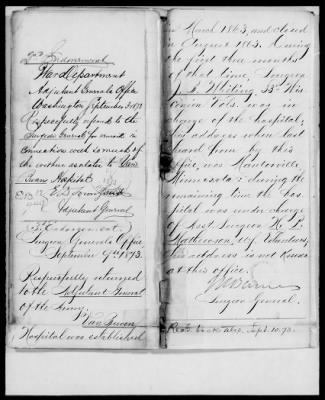 2nd Endorsement
War Department
Adjutant General's Office
Washington September 3 1873
Respectfully referred to the
Surgeon General for remark in
connection with so much of
the within as relates to Van
Buren Hospital.
E. D. Townsend
Adjutant General
3d Endorsement
Surgeon General's Office,
September 9th 1873.
Respectfully returned
to the Adjutant General
of the Army.
Van Buren
Hospital was established
in March 1863, and closed
in August 1863. During
the first three months
of that time, Surgeon
J. F. Whiting 33d Wis
consin Vols. was in
charge of the hospital;
his address when last
heard from by this
office, was Mantorville,
Minnesota: during the
remaining time the hos
pital was under charge
of Asst. Surgeon
Volunteers,
his address is not known
at this office.
J K Barnes
Surgeon General.
Sept. 10. 73.